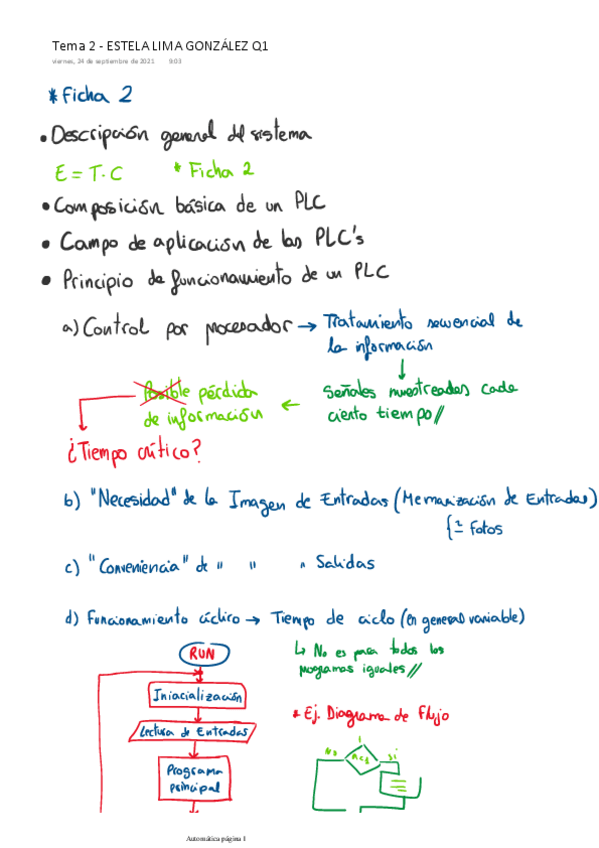 Tema 2 - ESTELA LIMA GONZÁLEZ Q1
viernes, 24 de septiembre de 2021 9:03
* Ficha 2
• Descripción general del sistema
E = T·C * Ficha 2
• Composición básica de un PLC
• Campo de aplicación de los PLC's
• Principio de funcionamiento de un PLC
a) Control por procesador → Tratamiento secuencial de
la información
↓
Señales muestreadas cada
cierto tiempo //
← Posible pérdida
de información
¿Tiempo crítico?
b) "Necesidad" de la Imagen de Entradas (Memorización de Entradas)
Fotos
c) "Conveniencia" de " " " Salidas
d) Funcionamiento cíclico → Tiempo de ciclo (en general variable)
↳ No es para todos los
programas iguales //
RUN
Iniacialización
Lectura de Entradas
Programa
principal
* Ej. Diagrama de Flujo
No
Sí
Automática página 1